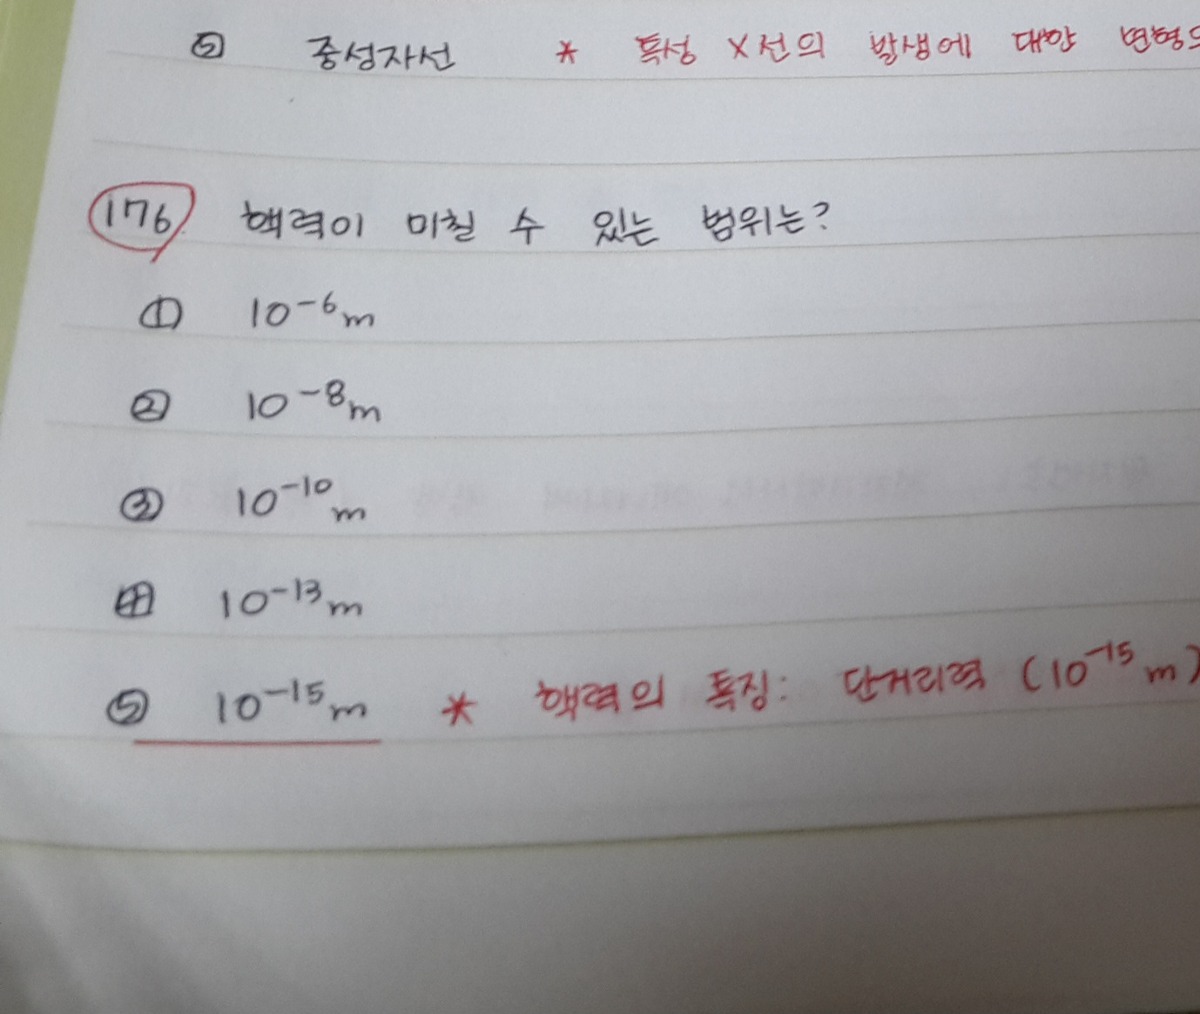 ⑤ 중성자선 * 특성 X선의 발생에 대한
176. 핵력이 미칠 수 있는 범위는?
① 10⁻⁶m
② 10⁻⁸m
③ 10⁻¹⁰m
④ 10⁻¹³m
⑤ 10⁻¹⁵m * 핵력의 특징: 단거리력 (10⁻¹⁵m)